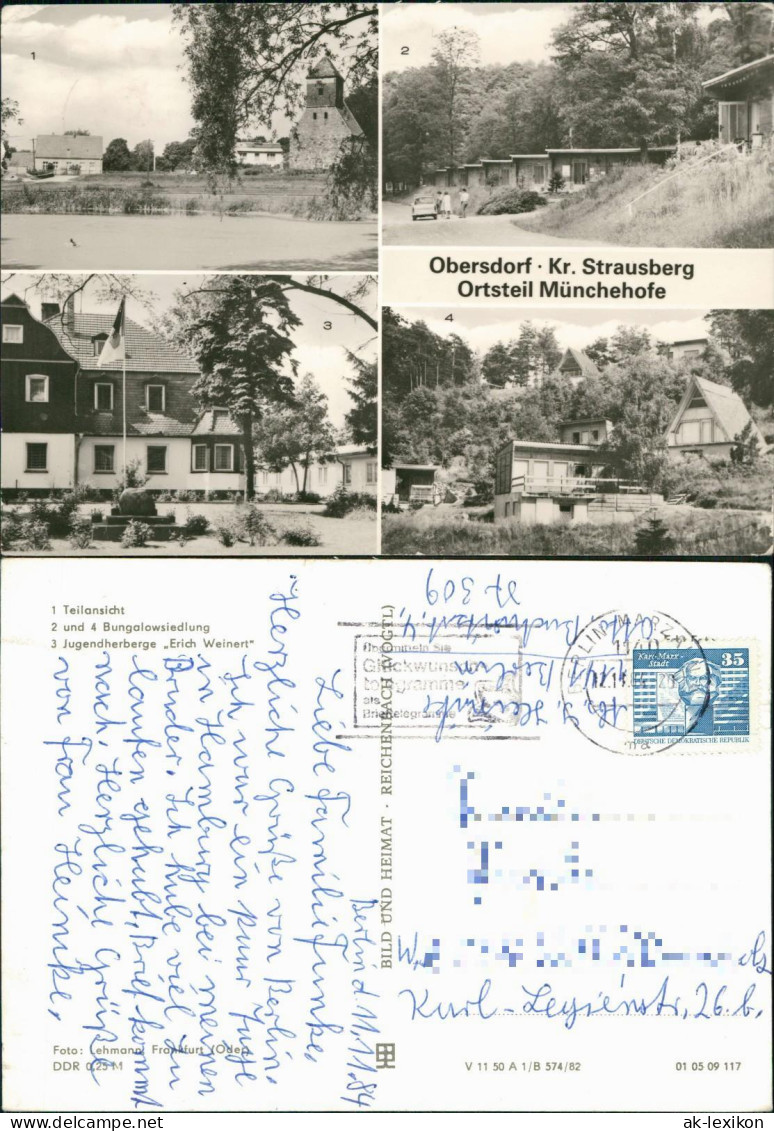 1
2
Obersdorf · Kr. Strausberg
Ortsteil Münchehofe
3
4
1 Teilansicht
2 und 4 Bungalowsiedlung
3 Jugendherberge „Erich Weinert"
Berlin d. 11.11.84
Liebe Familie Funke,
"Herzliche Grüße von Berlin.
Ich war ein paar Tage
in Hamburg bei meinen
Bruder. Ich habe viel zu
laufen gehabt, Brief kommt
nach. Herzliche Grüße
von Frau Heimke.
BILD UND HEIMAT · REICHENBACH (VOGTL)
Glückwunsch
telegramme
als
Brieftelegramme
Karl-Marx-
Stadt
35
DEUTSCHE DEMOKRATISCHE REPUBLIK
Karl-Legienstr, 26.b.
Foto: Lehmann, Frankfurt (Oder)
DDR 0,25 M
V 11 50 A 1/B 574/82
01 05 09 117
ak-lexikon.com